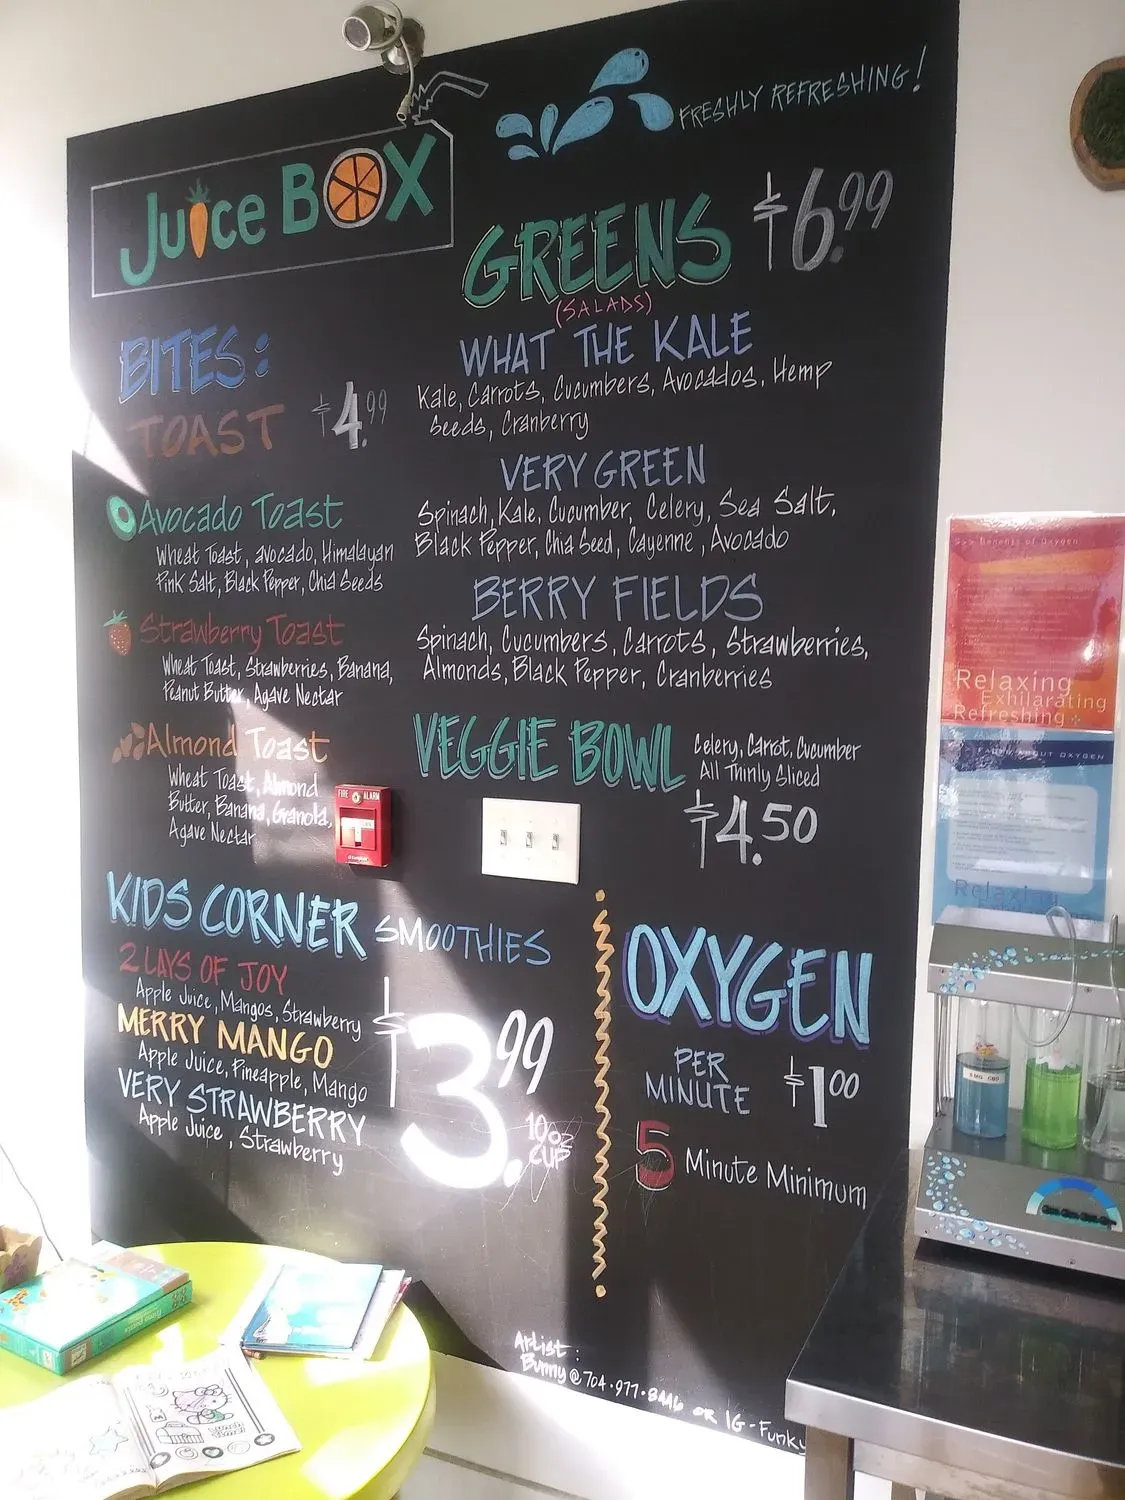 Juice BOX
FRESHLY REFRESHING!
GREENS $6.99
(SALADS)
WHAT THE KALE
Kale, Carrots, Cucumbers, Avocados, Hemp
Seeds, Cranberry
VERY GREEN
Spinach, Kale, Cucumber, Celery, Sea Salt,
Black Pepper, Chia Seed, Cayenne, Avocado
BERRY FIELDS
Spinach, Cucumbers, Carrots, Strawberries,
Almonds, Black Pepper, Cranberries
VEGGIE BOWL
Celery, Carrot, Cucumber
All Thinly Sliced
$4.50
BITES:
TOAST $4.99
Avocado Toast
Wheat Toast, avocado, Himalayan
Pink Salt, Black Pepper, Chia Seeds
Strawberry Toast
Wheat Toast, Strawberries, Banana,
Peanut Butter, Agave Nectar
Almond Toast
Wheat Toast, Almond
Butter, Banana, Granola,
Agave Nectar
FIRE ALARM
KIDS CORNER SMOOTHIES
2 LAYS OF JOY
Apple Juice, Mangos, Strawberry
MERRY MANGO
Apple Juice, Pineapple, Mango
VERY STRAWBERRY
Apple Juice, Strawberry
$3.99
10oz
CUP
OXYGEN
PER
MINUTE $1.00
5 Minute Minimum
Artist:
Bunny @ 704·977·8446 OR IG-Funky
Benefits of Oxygen
Relaxing
Exhilarating
Refreshing
ABOUT OXYGEN
Relaxing
5 MG CBD